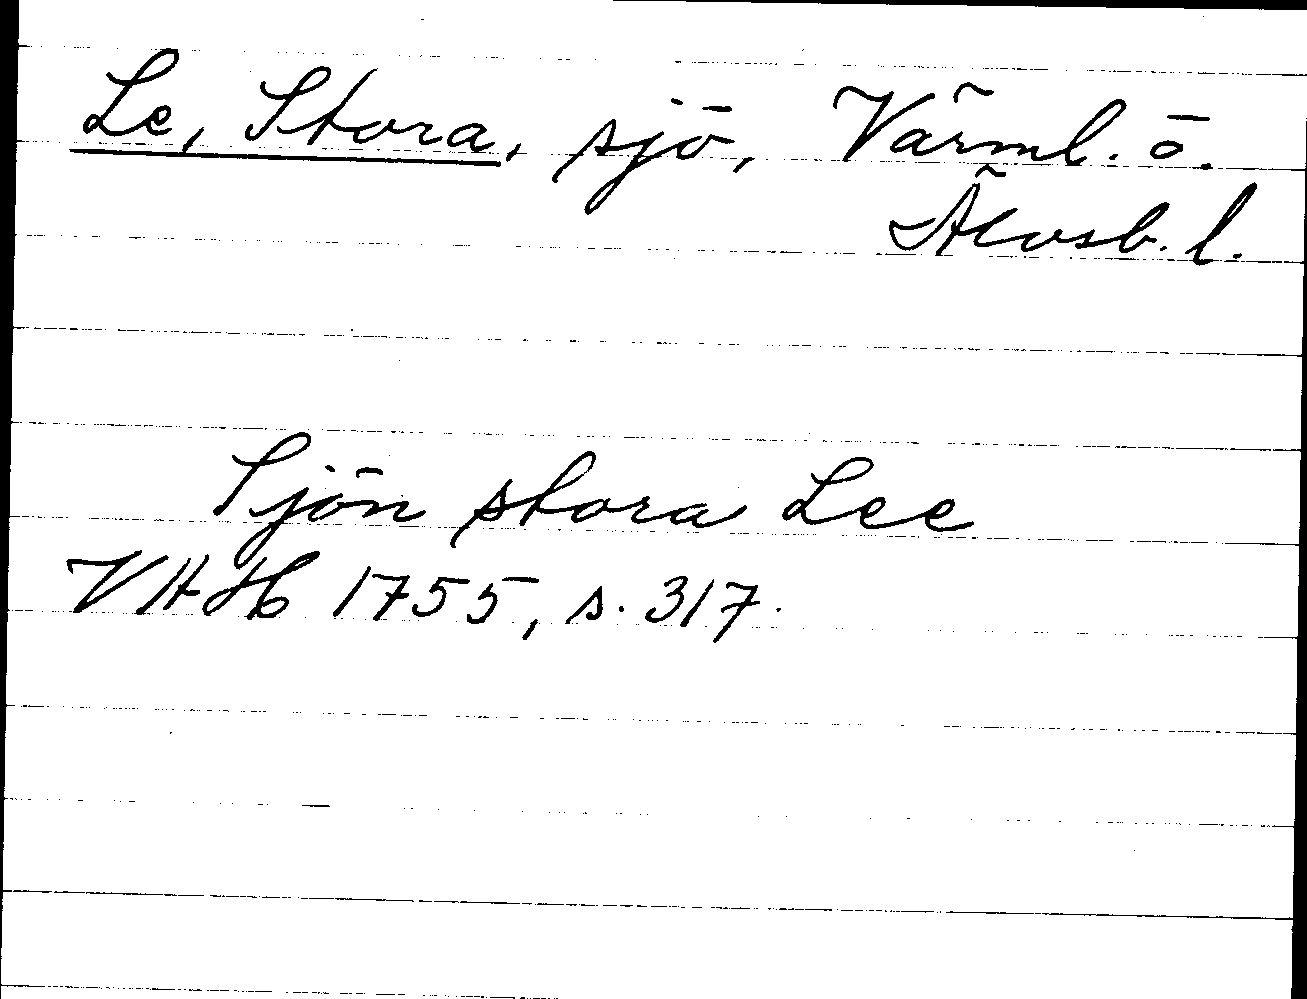 Le, Stora, sjö, Värml. o.
Älvsb. l.
Sjön stora Lee
VAH 1755, s. 317.